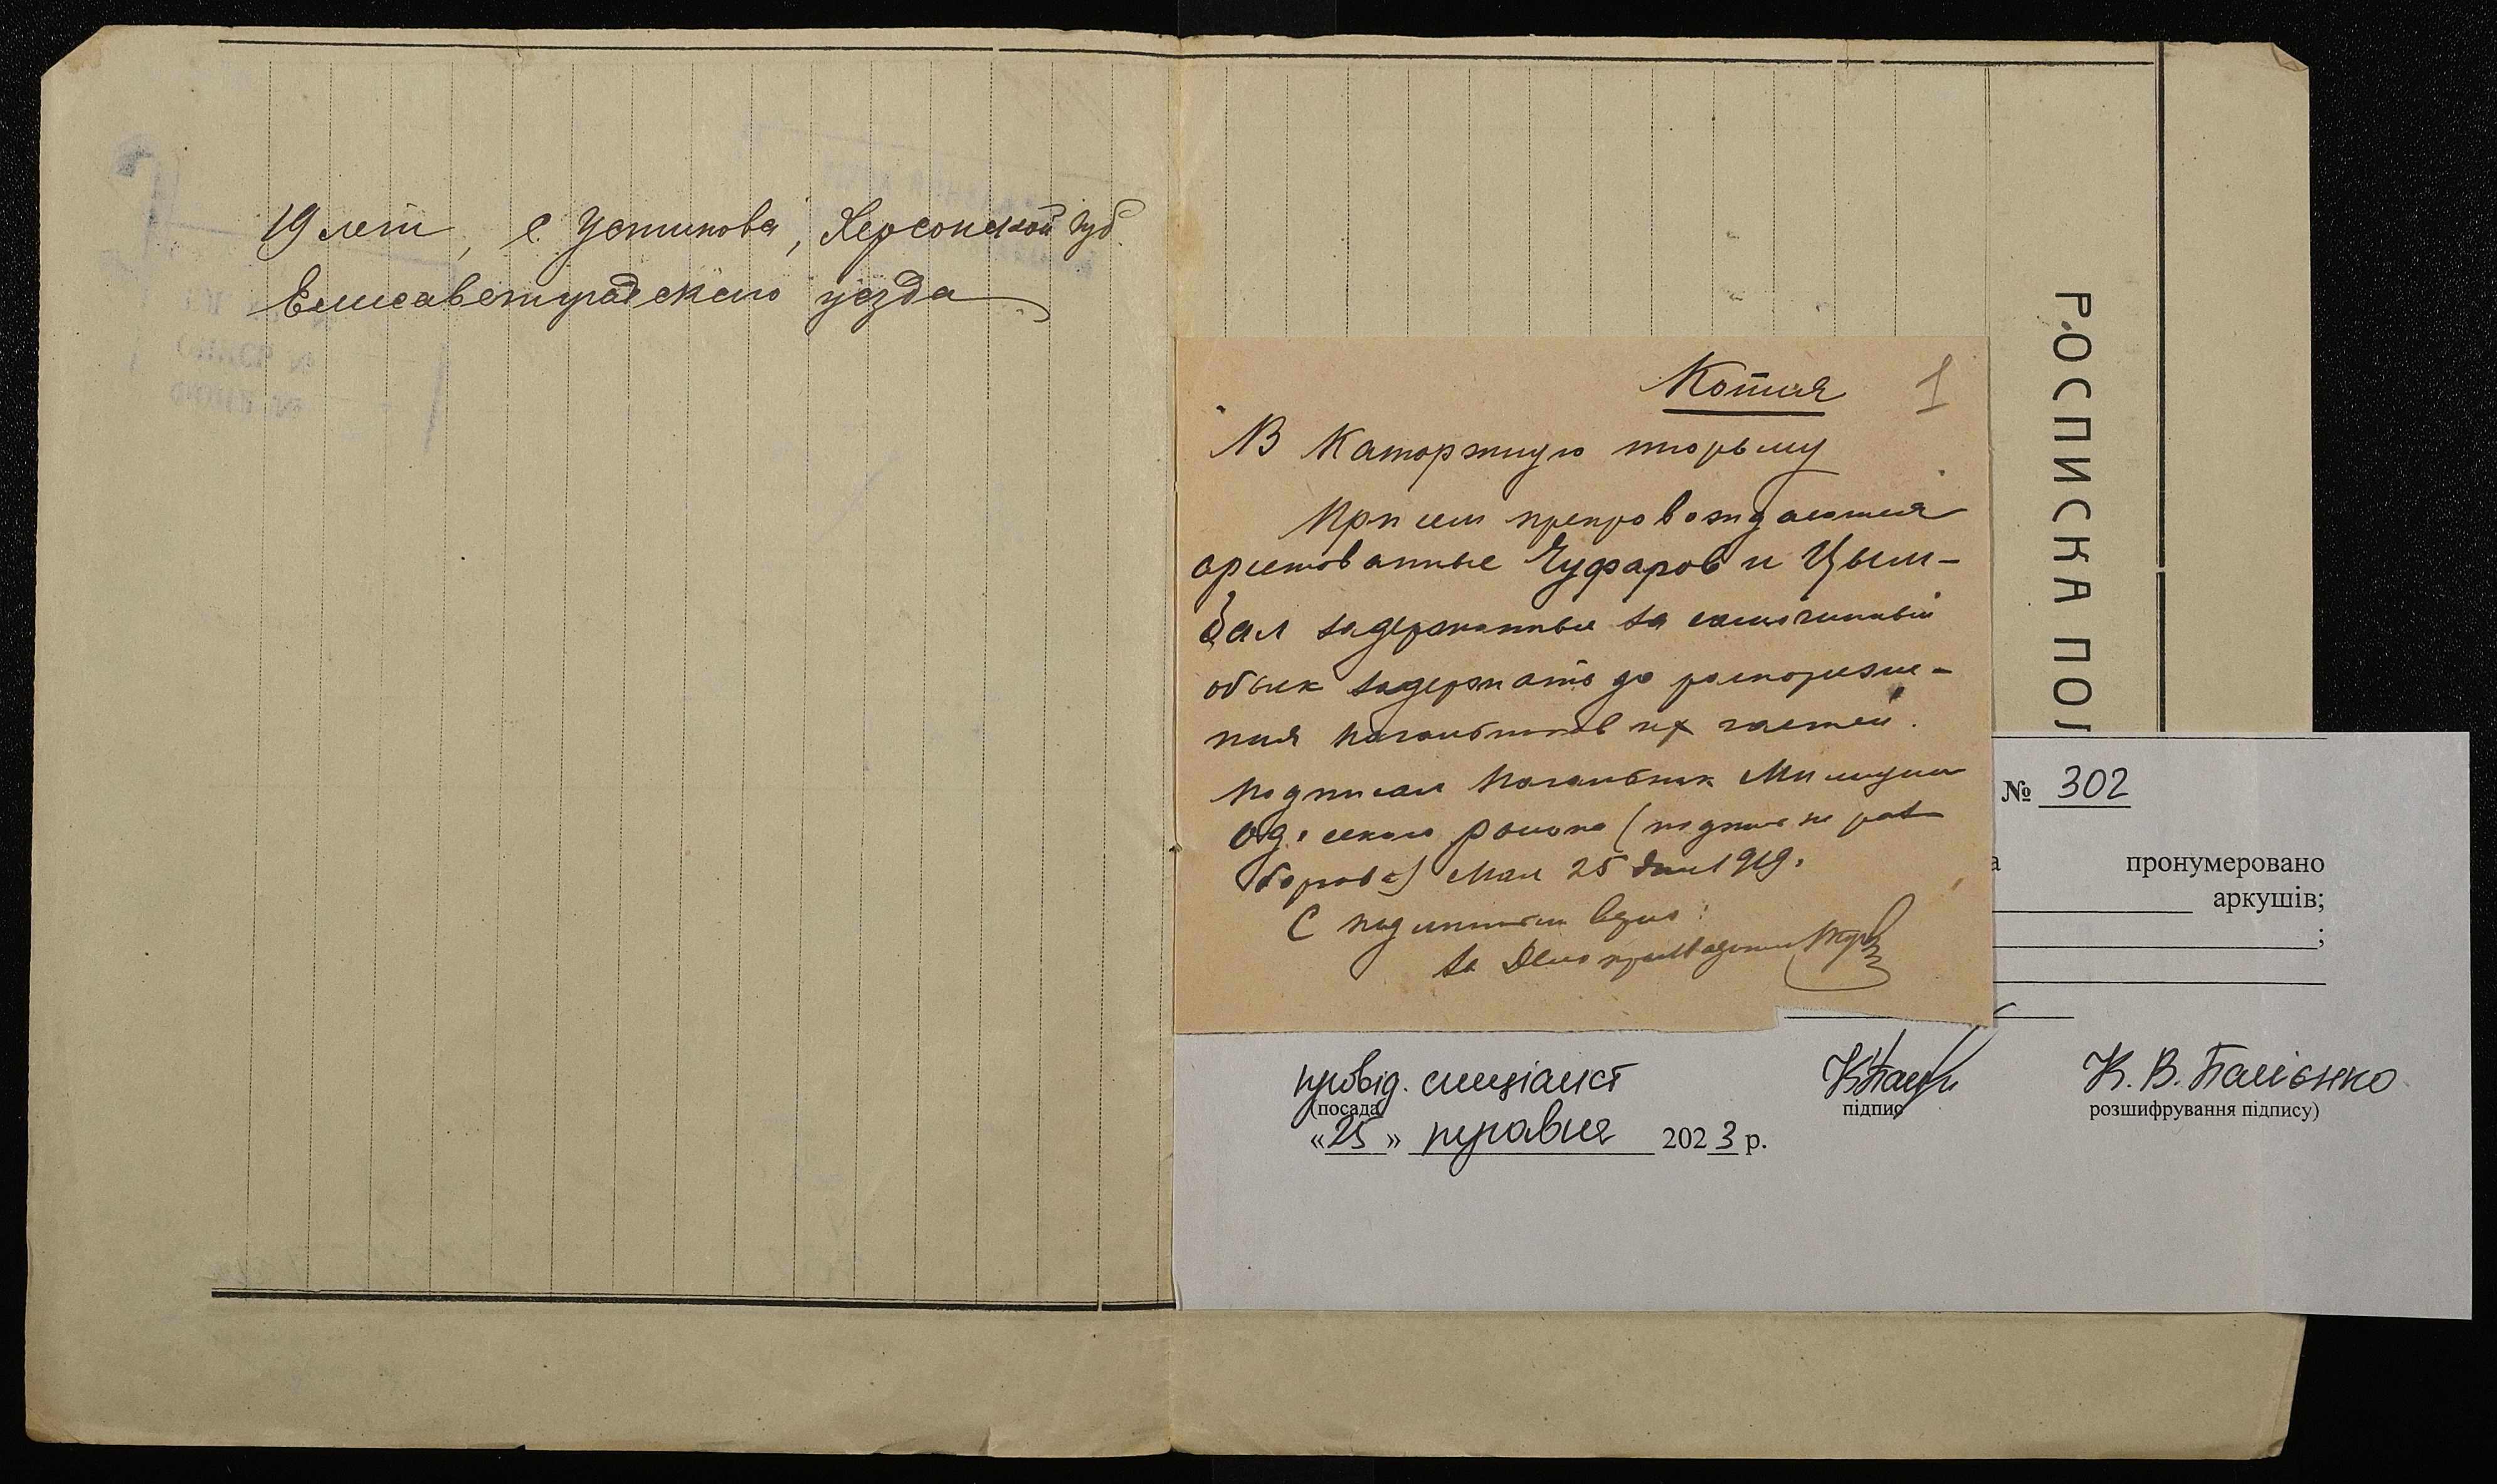 19 лет, с. Устинова, Херсонской губ.
Елисаветградского уезда
РОСПИСКА ПОЛ
Копия 1
В Каторжную тюрьму
При сем препровождаются
арестованные Чуфаров и Цым-
бал задержанные за самочинный
обыск задержать до распоряже-
ния начальников их частей.
Подписал Начальник Милиции
Одесского района (подпись не раз-
борчива) Мая 25 дня 1919.
С подлинным верно:
за Делопроизводителя
№ 302
а пронумеровано
аркушів;
;
провід. спеціаліст К. В. Балєнко
(посада підпис розшифрування підпису)
«25» травня 2023 р.